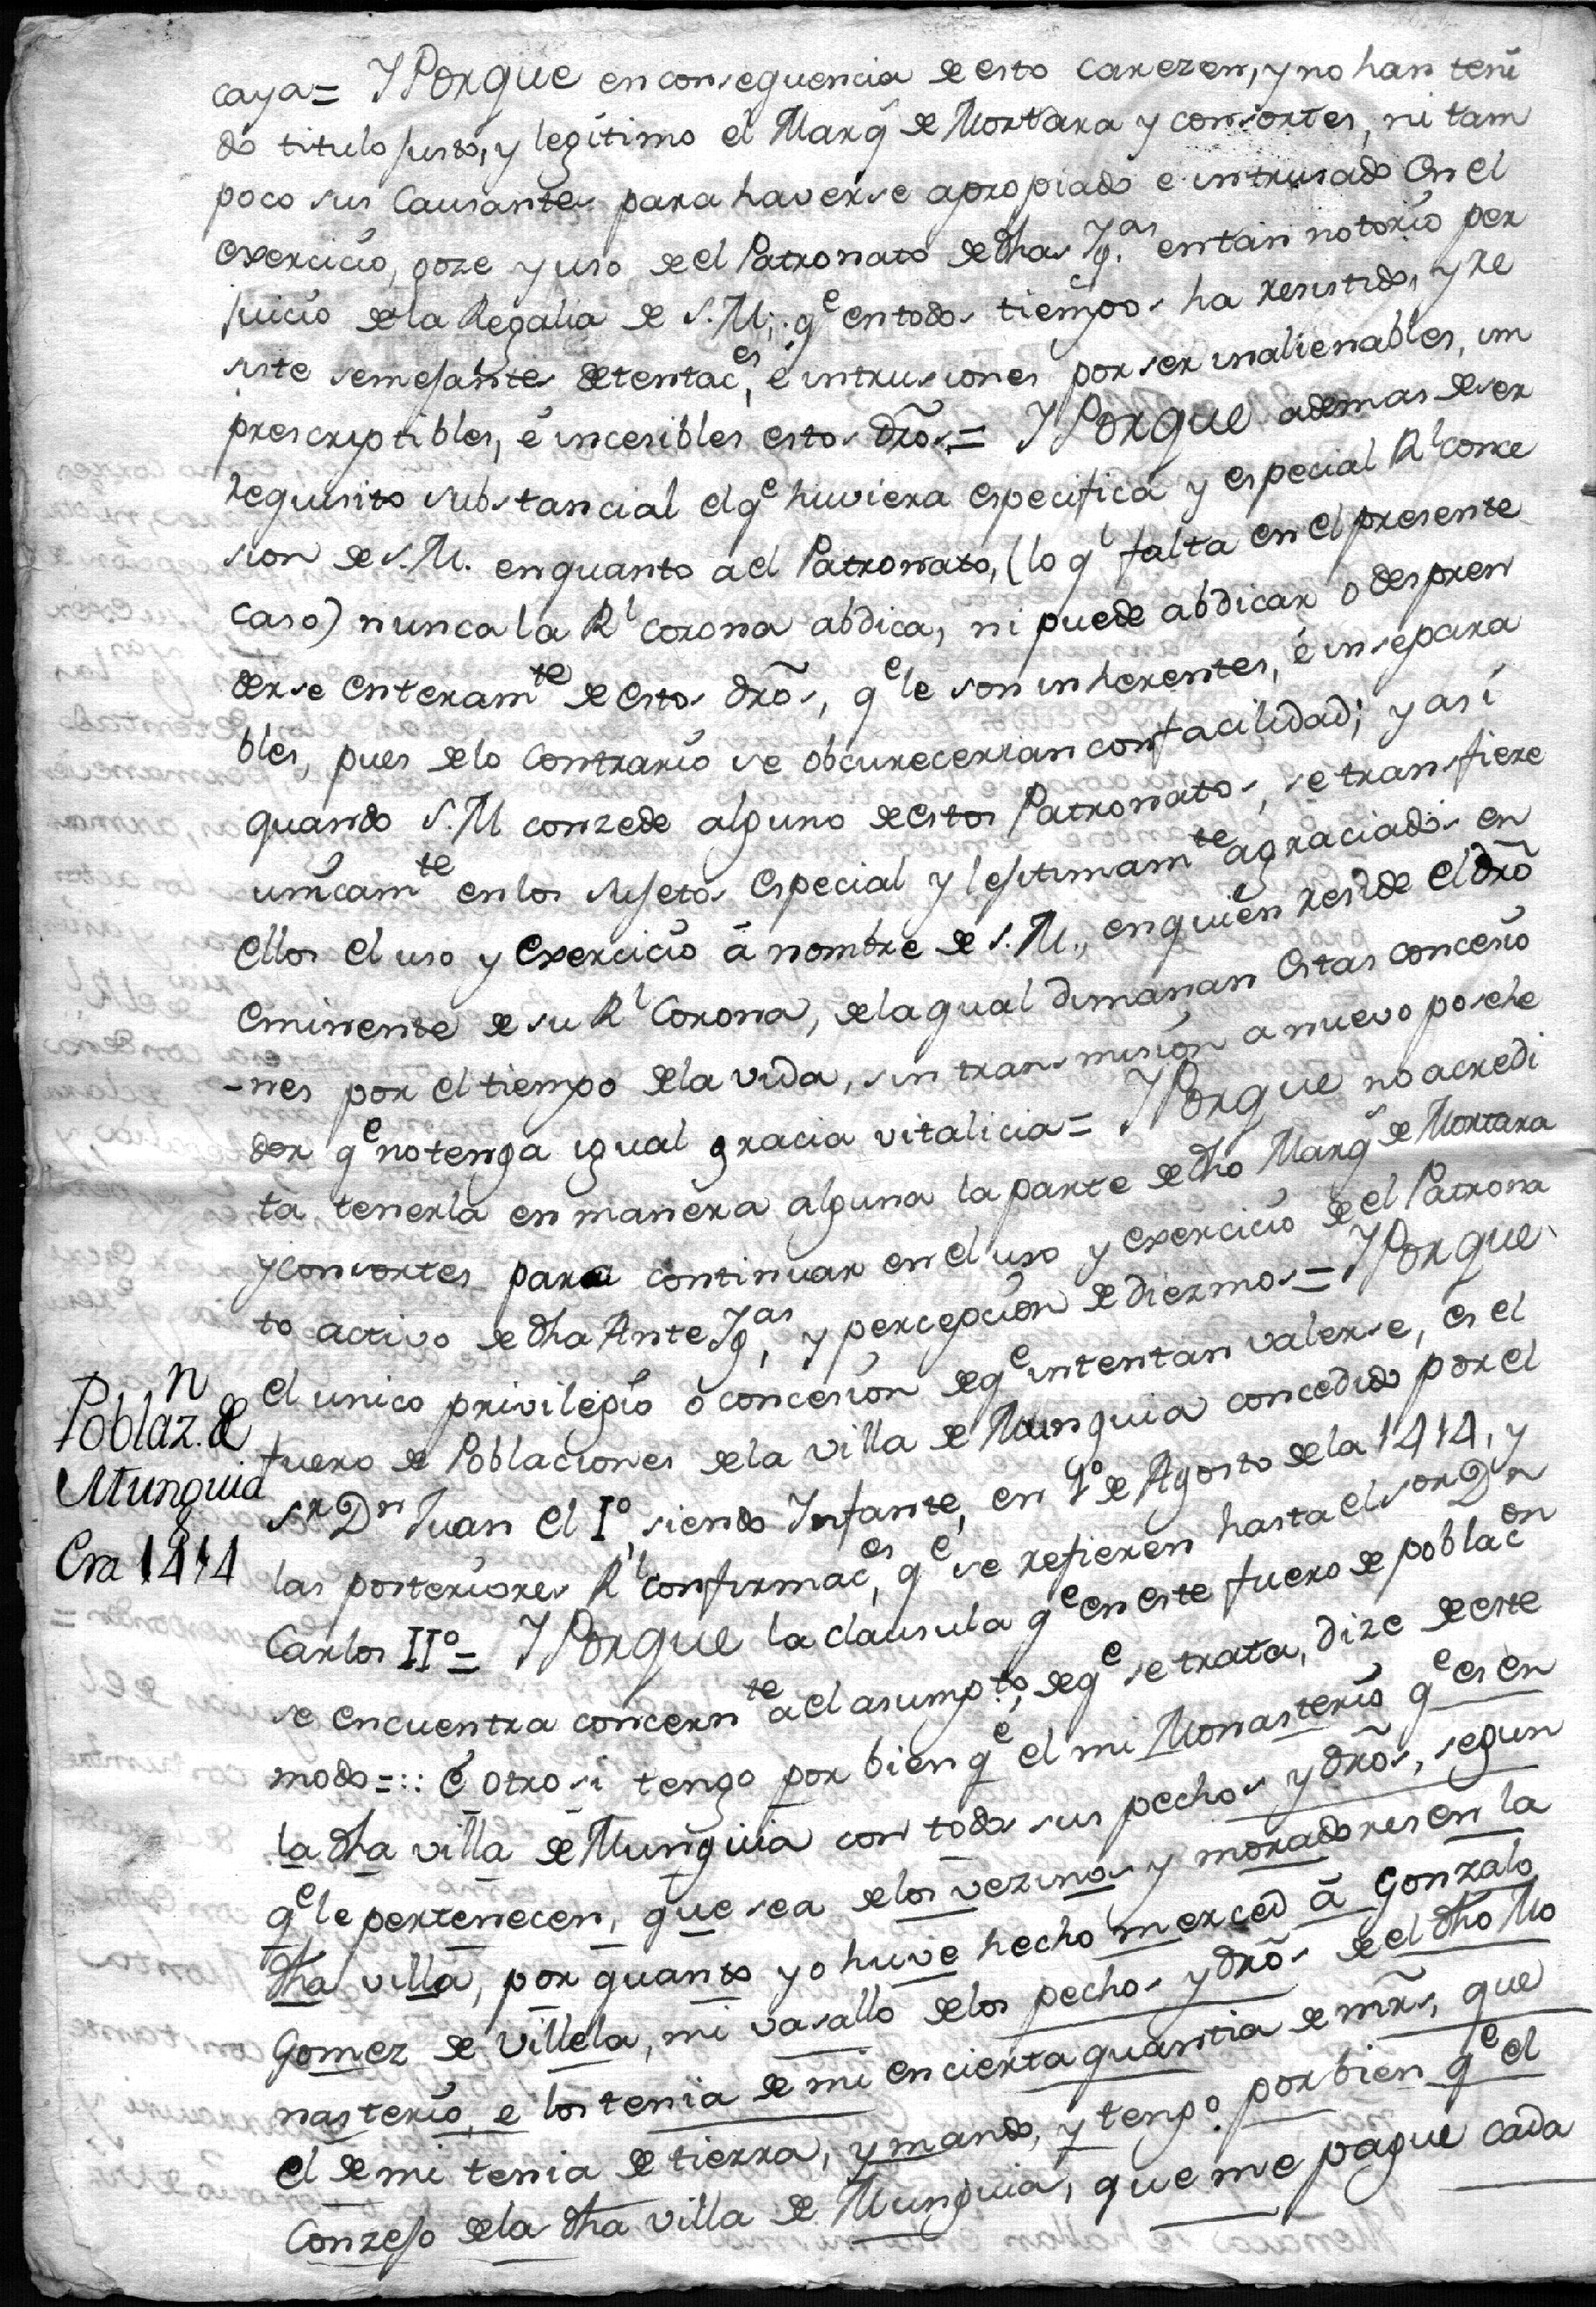 caya = Y Porque en consequencia de esto carezen, y no han teni
do titulo justo, y legitimo el Marq.s de Mortara y consortes, ni tam
poco sus Causantes para haverse apropiado e intrusado en el
exercicio, goze y uso de el Patronato de dhas Yg.as en tan notorio per
juicio de la Regalia de S.M.; q.e en todos tiempos ha resistido, y re
siste semejantes detentac.es, e intrusiones por ser inalienables, im
prescriptibles, é incesibles estos dros = Y Porque ademas de ser
requisito substancial el q.e huviera especifica y especial R.l conce
sion de S.M. en quanto a el Patronato, (lo q.l falta en el presente
caso) nunca la R.l Corona abdica, ni puede abdicar o despren
derse enteram.te de estos dros, q.e le son inherentes, é insepara
bles, pues de lo contrario se obcurecerian con facilidad; y así
quando S.M conzede alguno de estos Patronatos, se transfiere
unicam.te en los sujetos especial y lejitimam.te agraciados en
ellos el uso y exercicio á nombre de S.M., en quien reside el dro
eminente de su R.l Corona, de la qual dimanan estas concesio
-nes por el tiempo de la vida, sin transmision a nuevo poshe
dor q.e no tenga igual gracia vitalicia = Y Porque no acredi
ta tenerla en manera alguna la parte de dho Marq.s de Mortara
y consortes para continuar en el uso y exercicio de el Patrona
to activo de dha Ante Yg.as, y percepcion de diezmos = Y Porque
el unico privilegio o concesion de q.e intentan valerse, es el
fuero de Poblaciones de la villa de Munguia concedido por el
S.r D.n Juan el I.o, siendo Infante, en 1.o de Agosto de la 1414, y
las posteriores R.l confirmac.es, q.e se refieren hasta el s.or D.n
Carlos II.o = Y Porque la clausula q.e en este fuero de poblac.on
se encuentra concern.te a el asumpto, de q.e se trata, dize de este
modo = :: é otro si tengo por bien q.e el mi Monasterio q.e es en
la dha villa de Munguia con todos sus pechos y dros, segun
q.e le pertenecen, que sea de los vezinos y moradores en la
dha villa, por quanto yo huve hecho merced á Gonzalo
Gomez de Villela, mi vasallo de los pechos y dros de el dho Mo
nasterio, e los tenia de mi en cierta quantia de mrs, que
el de mi tenia de tierra, y mando, y tengo por bien q.e el
Conzejo de la dha villa de Munguia, que me pague cada
Poblaz.n de
Munguia
Era 1414